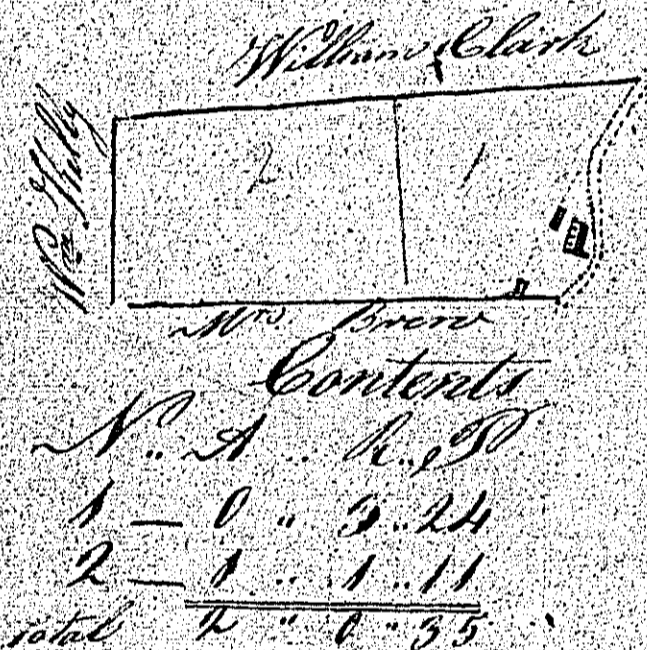 William Clark
Wm
2 1
Mrs.
Contents
N.. A .. R.. P.
1 — 0 " 3 .. 24
2 — 1 .. 1 .. 11
Total 2 " 0 " 35